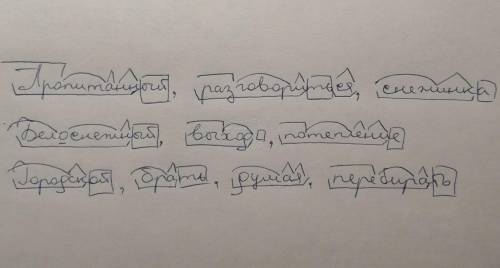 Пропитанный, разговориться, снежинка
Белоснежный, выход, потепление
Городской, брать, думая, перебирать